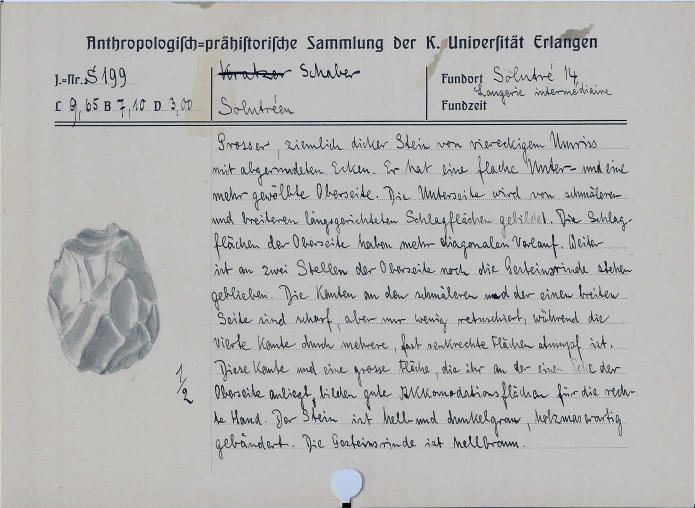 Anthropologisch=prähistorische Sammlung der K. Universität Erlangen
J.=Nr. S 199
Kratzer Schaber
Fundort Solutré 14
Laugerie intermédiaire
L 9,65 B 7,10 D 3,00
Solutréen
Fundzeit
Grosser, ziemlich dicker Stein von viereckigem Umriss
mit abgerundeten Ecken. Er hat eine flache Unter- und eine
mehr gewölbte Oberseite. Die Unterseite wird von schmäleren
und breiteren längsgerichteten Schlagflächen gebildet. Die Schlag-
flächen der Oberseite haben mehr diagonalen Verlauf. Weiter
ist an zwei Stellen der Oberseite noch die Gesteinsrinde stehen
geblieben. Die Kanten an den schmäleren und der einen breiten
Seite sind scharf, aber nur wenig retuschiert, während die
vierte Kante durch mehrere, fast senkrechte Flächen stumpf ist.
Diese Kante und eine grosse Fläche, die ihr an der einen Ecke der
Oberseite anliegt, bilden gute Akkomodationsflächen für die rech-
te Hand. Der Stein ist hell- und dunkelgrau, holzmaserartig
gebändert. Die Gesteinsrinde ist hellbraun.
1/2